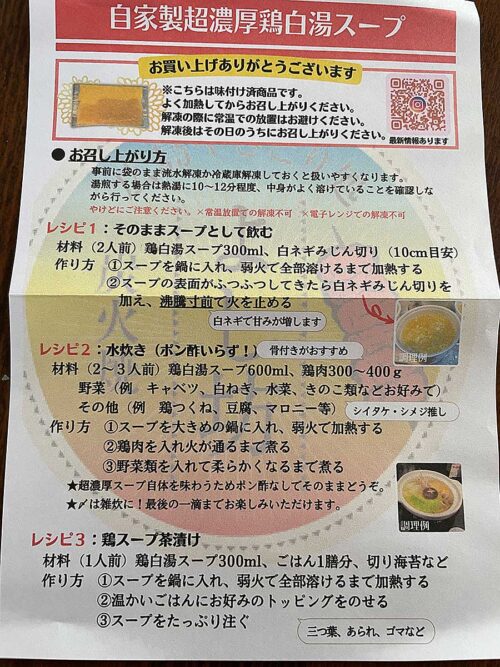 自家製超濃厚鶏白湯スープ
お買い上げありがとうございます
※こちらは味付け済商品です。
よく加熱してからお召し上がりください。
解凍の際に常温での放置はお避けください。
解凍後はその日のうちにお召し上がりください。
最新情報あります
●お召し上がり方
事前に袋のまま流水解凍か冷蔵庫解凍しておくと扱いやすくなります。
湯煎する場合は熱湯に10～12分程度、中身がよく溶けていることを確認しな
がら行ってください。
やけどにご注意ください。×常温放置での解凍不可 ×電子レンジでの解凍不可
レシピ1：そのままスープとして飲む
材料（2人前）鶏白湯スープ300ml、白ネギみじん切り（10cm目安）
作り方 ①スープを鍋に入れ、弱火で全部溶けるまで加熱する
②スープの表面がふつふつしてきたら白ネギみじん切りを
加え、沸騰寸前で火を止める
白ネギで甘みが増します
調理例
レシピ2：水炊き（ポン酢いらず！）
骨付きがおすすめ
材料（2～3人前）鶏白湯スープ600ml、鶏肉300～400g
野菜（例 キャベツ、白ねぎ、水菜、きのこ類などお好みで）
その他（例 鶏つくね、豆腐、マロニー等）
シイタケ・シメジ推し
作り方 ①スープを大きめの鍋に入れ、弱火で加熱する
②鶏肉を入れ火が通るまで煮る
③野菜類を入れて柔らかくなるまで煮る
★超濃厚スープ自体を味わうためポン酢なしでそのままどうぞ。
★〆は雑炊に！最後の一滴までお楽しみいただけます。
調理例
レシピ3：鶏スープ茶漬け
材料（1人前）鶏白湯スープ300ml、ごはん1膳分、切り海苔など
作り方 ①スープを鍋に入れ、弱火で全部溶けるまで加熱する
②温かいごはんにお好みのトッピングをのせる
③スープをたっぷり注ぐ
三つ葉、あられ、ゴマなど